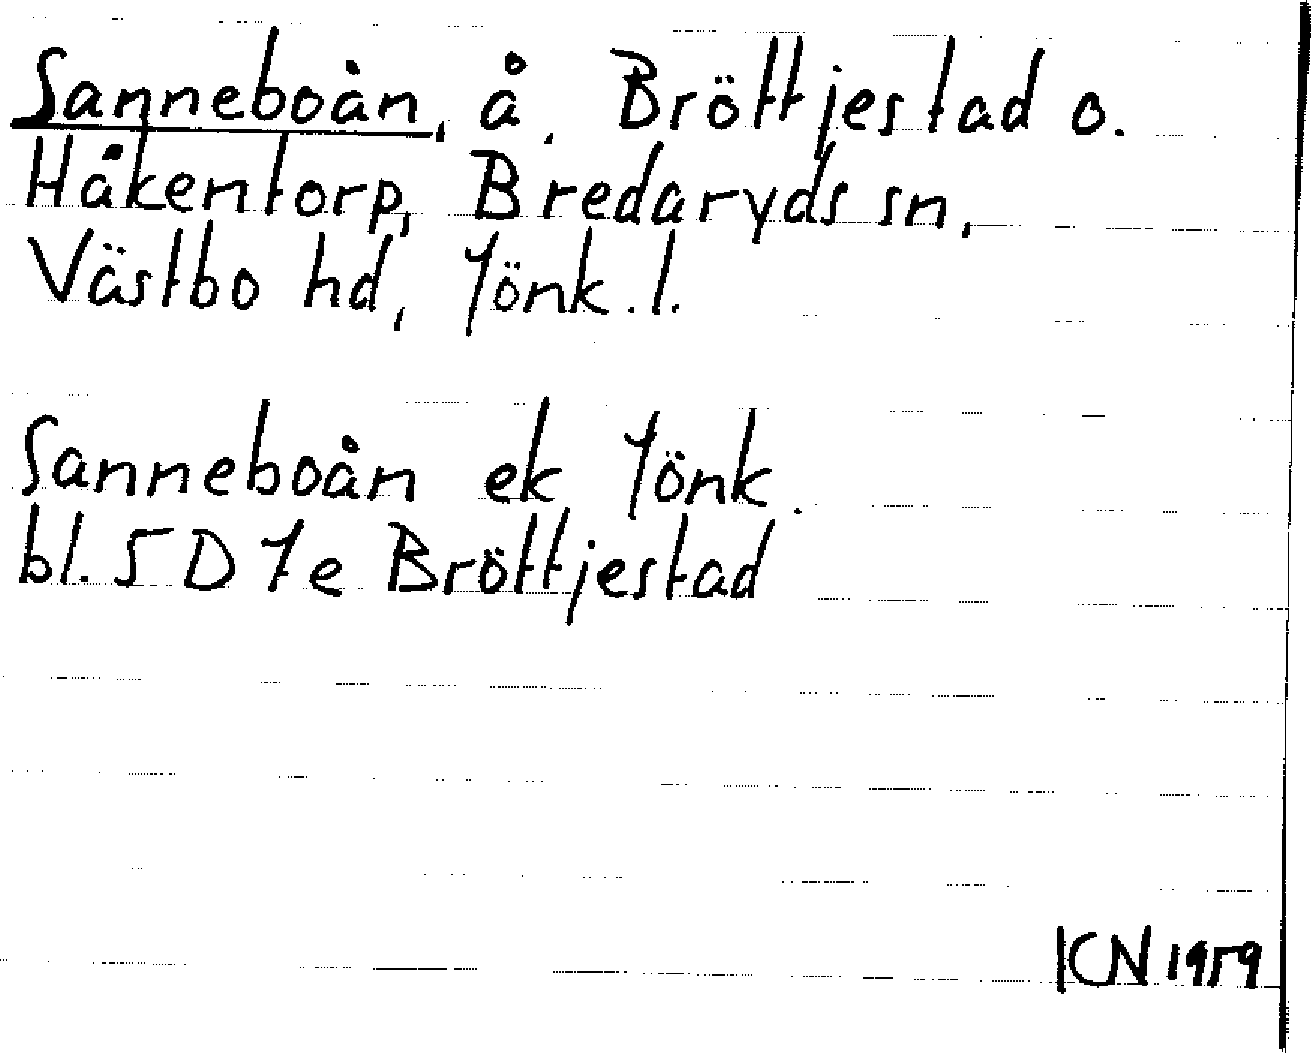 Sanneboån, å, Bröttjestad o.
Håkentorp, Bredaryds sn,
Västbo hd, Jönk. l.
Sanneboån ek Jönk.
bl. 5 D 7e Bröttjestad
KN 1959